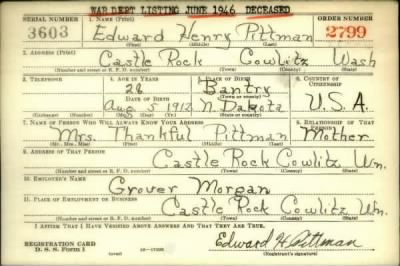 WAR DEPT LISTING JUNE 1946 DECEASED
SERIAL NUMBER 1. NAME (Print) ORDER NUMBER
3603 Edward Henry Pittman 2799
(First) (Middle) (Last)
2. ADDRESS (Print)
Castle Rock Cowlitz Wash
(Number and street or R. F. D. number) (Town) (County) (State)
3. TELEPHONE 4. AGE IN YEARS 5. PLACE OF BIRTH 6. COUNTRY OF CITIZENSHIP
28 Bantry
DATE OF BIRTH (Town or county)
Aug 5 1912 N. Dakota U.S.A.
(Exchange) (Number) (Mo.) (Day) (Yr.) (State or country)
7. NAME OF PERSON WHO WILL ALWAYS KNOW YOUR ADDRESS 8. RELATIONSHIP OF THAT PERSON
Mrs. Thankful Pittman Mother
(Mr., Mrs., Miss) (First) (Middle) (Last)
9. ADDRESS OF THAT PERSON
Castle Rock Cowlitz Wn.
(Number and street or R. F. D. number) (Town) (County) (State)
10. EMPLOYER'S NAME
Grover Morgan
11. PLACE OF EMPLOYMENT OR BUSINESS
Castle Rock Cowlitz Wn.
(Number and street or R. F. D. number) (Town) (County) (State)
I AFFIRM THAT I HAVE VERIFIED ABOVE ANSWERS AND THAT THEY ARE TRUE.
REGISTRATION CARD
D. S. S. Form 1
Edward H. Pittman
(Registrant's signature)